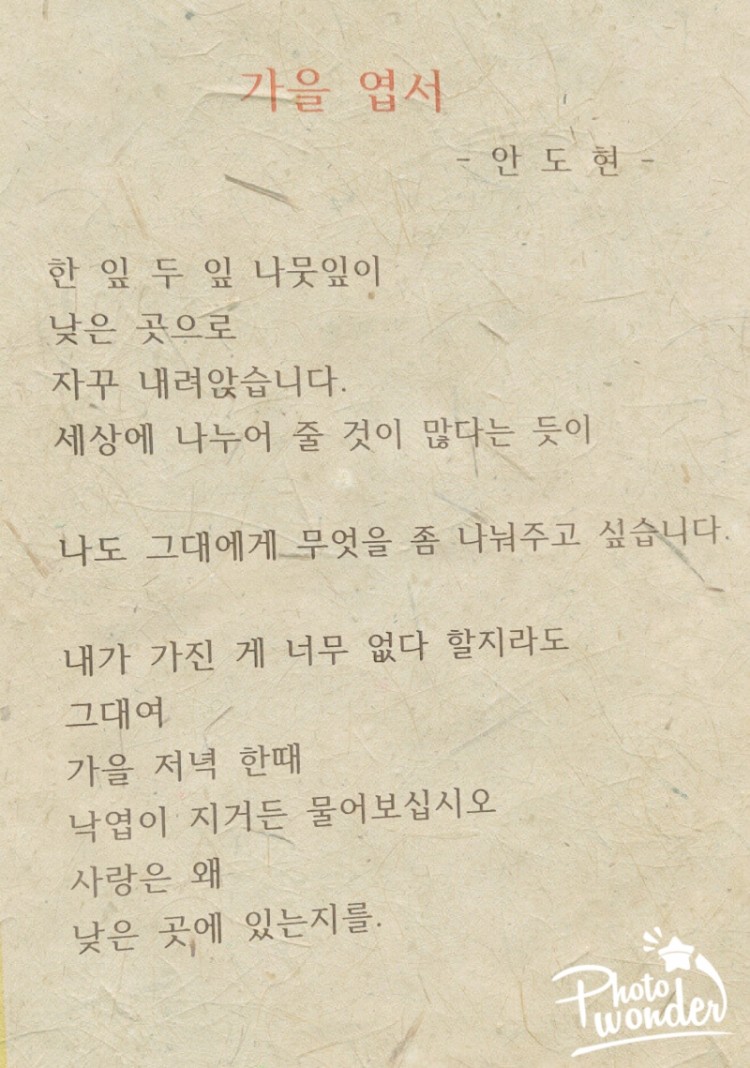 가을 엽서
- 안 도 현 -
한 잎 두 잎 나뭇잎이
낮은 곳으로
자꾸 내려앉습니다.
세상에 나누어 줄 것이 많다는 듯이
나도 그대에게 무엇을 좀 나눠주고 싶습니다.
내가 가진 게 너무 없다 할지라도
그대여
가을 저녁 한때
낙엽이 지거든 물어보십시오
사랑은 왜
낮은 곳에 있는지를.
Photo
wonder